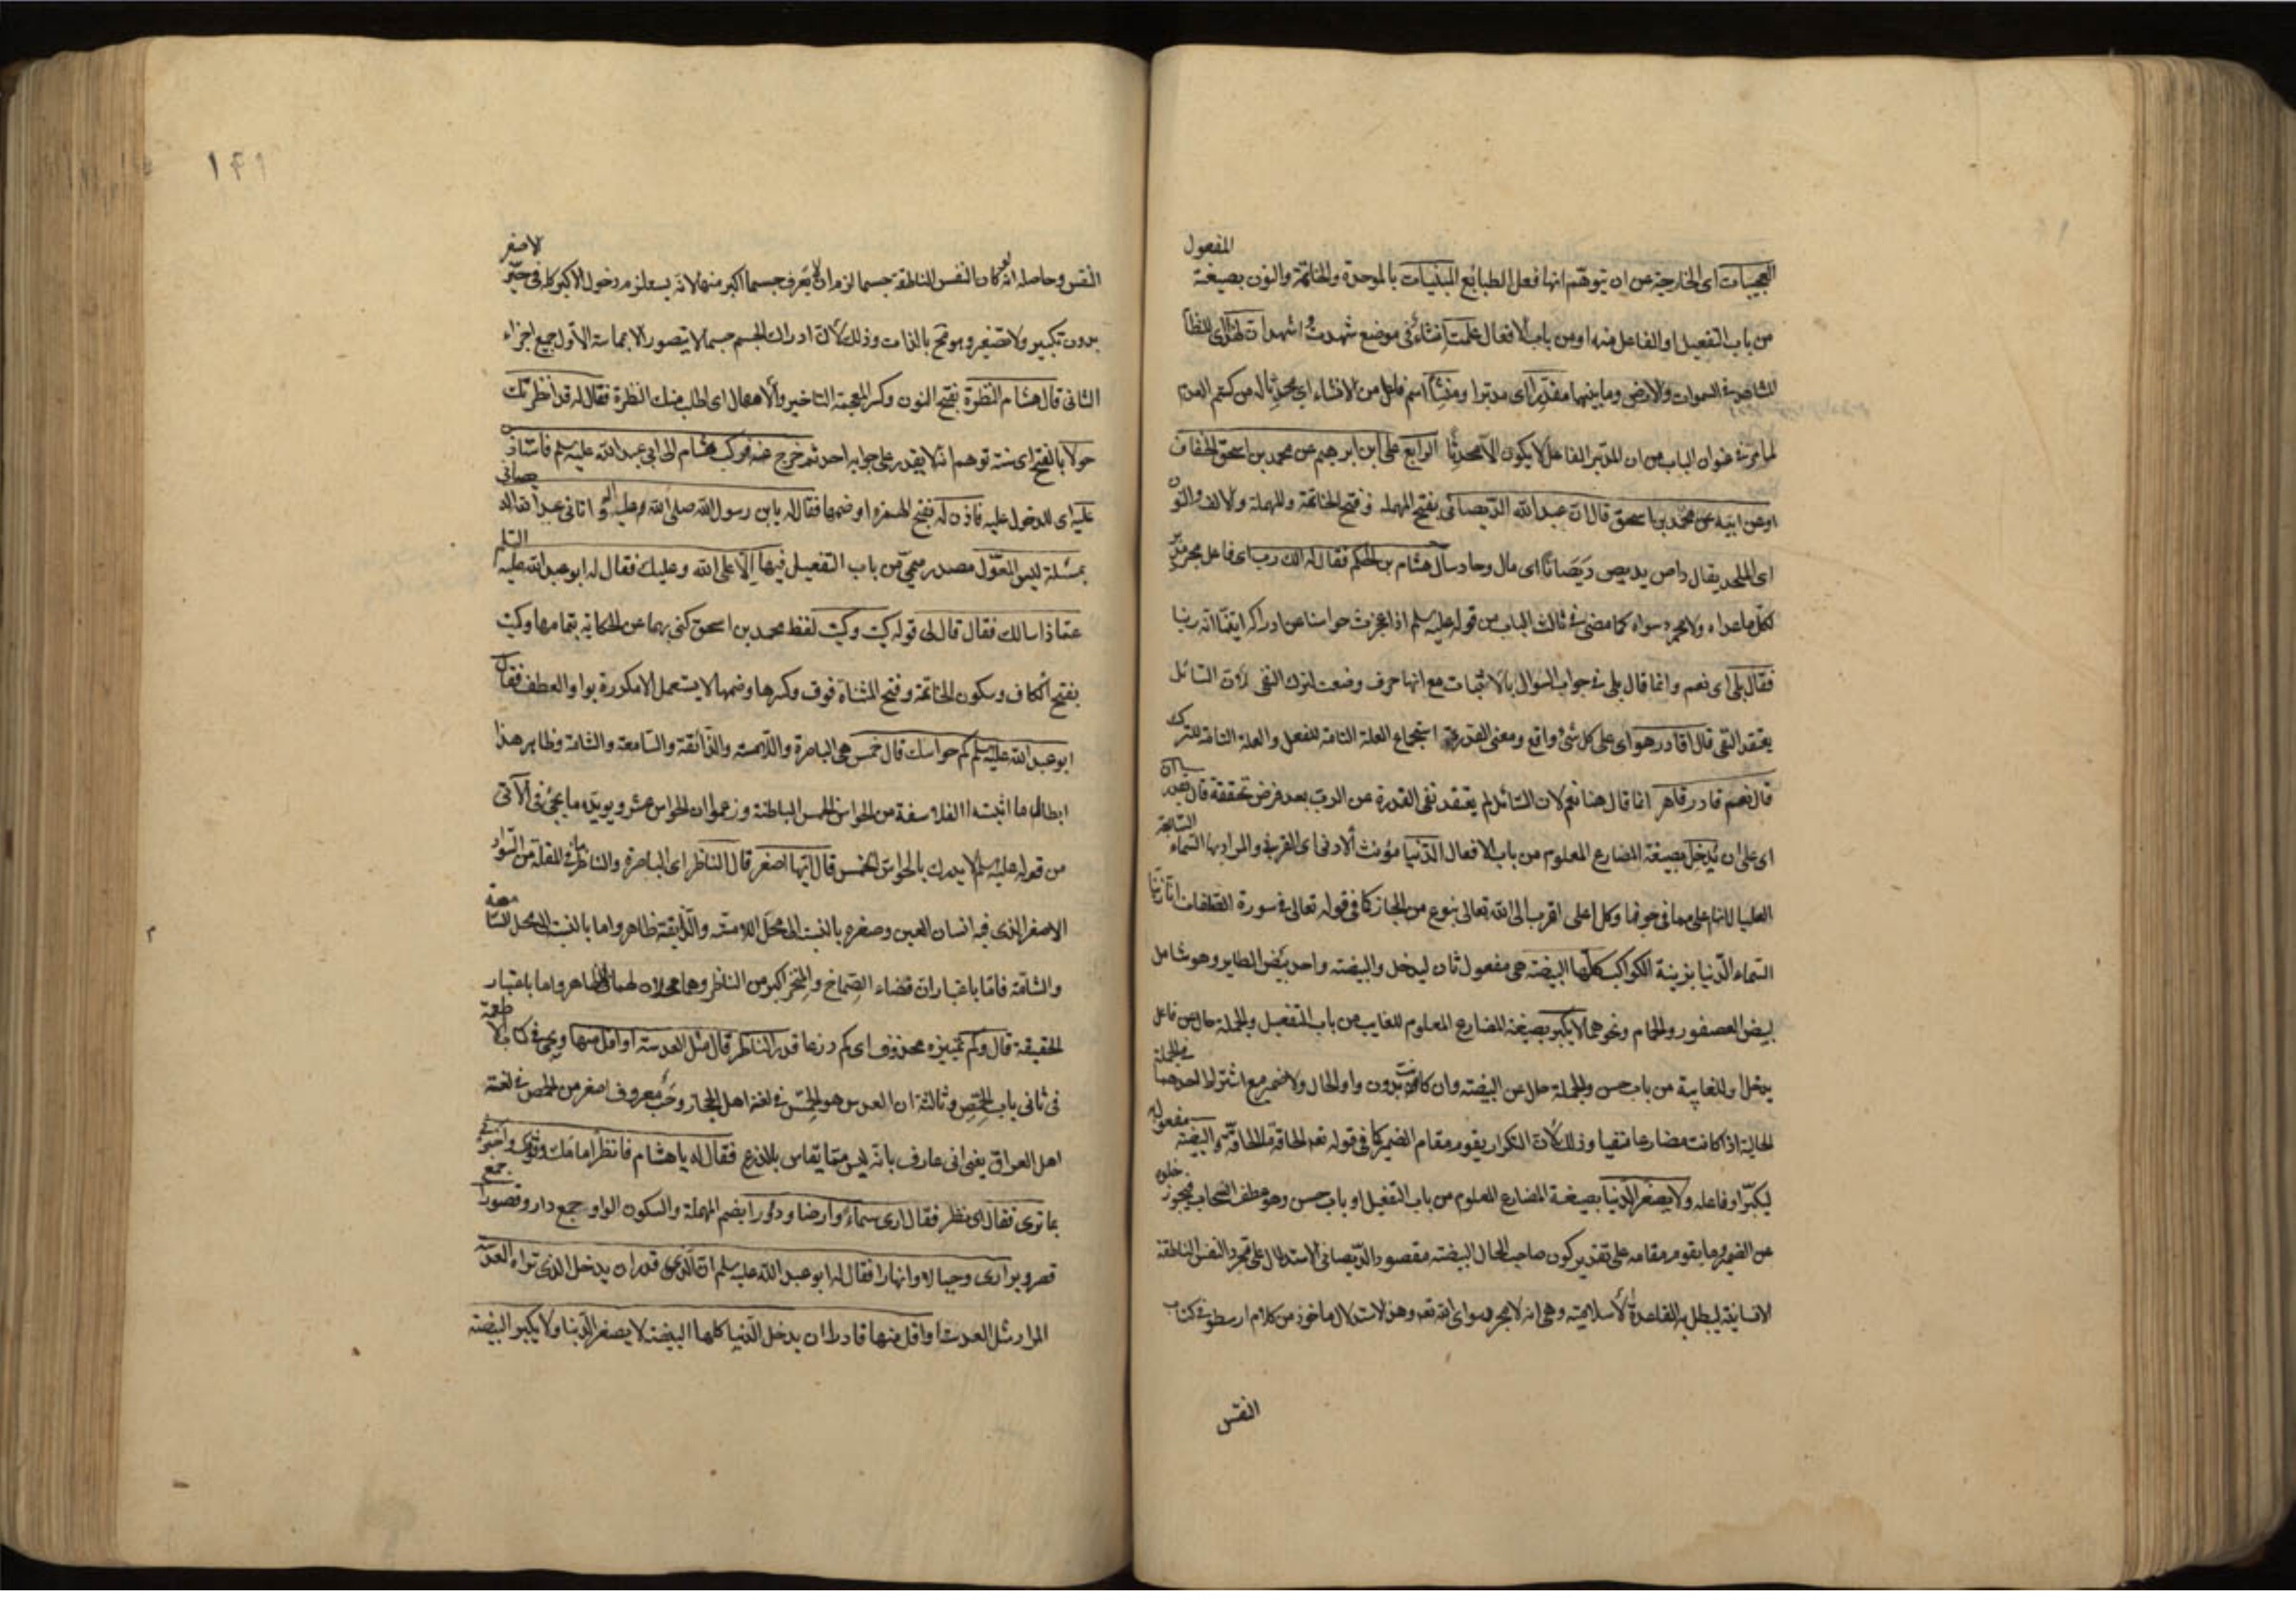 المفعول
العجيبات اى الخارجية عن ان يتوهم انها فعل الطبائع المبنيات بالموحدة والخاتمة والنون بصيغة
من باب التفعيل او الفاعل منه او من باب الافعال علمت انشاء فى موضع شهدت اشهد ان لهذا اى للنظام
المشاهد فى السموات والارض وما بينهما مقدرا اى مدبرا ومنشئا اسم فاعل من الانشاء اى محدثا له من كتم العدم
لما مر فى عنوان الباب من ان المدبر الفاعل لا يكون الا محدثا الرابع على ابن ابرهيم عن محمد بن اسحق الخفاف
او عن ابيه عن محمد بن اسحق قال ان عبد الله الديصانى بفتح المهملة وفتح الخاتمة والمهملة والالف والنون
اى الملحد يقال داص يديص ديصانا اى مال وحاد سأل هشام بن الحكم فقال له الك رب اى فاعل مجرد مدبر
لكل ما عداه ولا مجرد سواه كما مضى فى ثالث الباب من قوله عليه سلم اذا عجزت حواسنا عن ادراكه ايقنا انه ربنا
فقال بلى اى نعم وانما قال بلى فى جواب السؤال بالاثبات مع انها حرف وضعت لترك النفى لان السائل
يعتقد النفى قال اقادر هو اى على كل شئ واقع ومعنى القدرة استجماع العلة التامة للفعل والعلة التامة للترك
قال نعم قادر قاهر انما قال هنا نعم لان السائل لم يعتقد نفى القدرة عن الرب بعد فرض تحققه قال يقدر
اى على ان يدخل بصيغة المضارع المعلوم من باب الافعال الدنيا مؤنث الادنى اى القربى والمراد بها السماء السابعة
العليا لانها على ما فى جوفها وكل اعلى اقرب الى الله تعالى بنوع من المجاز كما فى قوله تعالى فى سورة الصافات انا زينا
السماء الدنيا بزينة الكواكب كلها البيضة هى مفعول ثان ليدخل والبيضة واحد بيض الطاير وهو شامل
لبيض العصفور والحمام ونحوهما لا يكبر بصيغة المضارع المعلوم للغايب من باب التفعيل والجملة حال عن فاعل
يدخل او للغايبة من باب حسن والجملة حال عن البيضة وان كانت بدون واو الحال ولا ضمير مع اشتراط احدهما فى الجملة
الحالية اذا كانت مضارعا منفيا وذلك لان التكرار يقوم مقام الضمير كما فى قوله تعه الحاقة ما الحاقة البيضة مفعول
ليكبر او فاعله ولا يصغر الدنيا بصيغة المضارع المعلوم من باب التفعيل او باب حسن وهو عطف فيجوز خلوه
عن الضمير وما يقوم مقامه على تقدير كون صاحب الحال البيضة مقصود الديصانى الاستدلال على تجرد النفس الناطقة
الانسانية ليبطل به القاعدة الاسلامية وهى انه لا مجرد سوى الله تعه وهذا الاستدلال ماخوذ من كلام ارسطو فى كتاب
النفس
١٤١
النفس وحاصله انه لو كان النفس الناطقة جسما لزم ان لا يعرف جسما اكبر منها لانه يستلزم دخول الاكبر كله فى حيز الاصغر
بدون تكبير ولا تصغير وهو مح بالذات وذلك لان ادراك الجسم جسما لا يتصور الا بمماسة الاول جميع اجزاء
الثانى قال هشام النظرة بفتح النون وكسر المعجمة التاخير والامهال اى اطلب منك النظرة فقال له قد انظرتك
حولا بالفتح اى سنة توهم انه لا يقدر على جوابه احد ثم خرج عنه فركب هشام الى ابى عبد الله عليه سلم فاستاذن
عليه اى للدخول عليه فاذن له بفتح الهمزة او ضمها فقال له يابن رسول الله صلى الله عليه اتانى عبد الله الديصانى
بمسئلة ليس المعول مصدر ميمى من باب التفعيل فيها الا على الله وعليك فقال له ابو عبد الله عليه السلم
عماذا سالك فقال قال لى قوله كيت وكيت لفظ محمد بن اسحق كنى بهما عن الحكاية بتمامها وكيت
بفتح الكاف وسكون الخاتمة وفتح المثناة فوق وكسرها وضمها لا يستعمل الا مكررة بواو العطف فقال
ابو عبد الله عليه سلم كم حواسك قال خمس هى الباصرة واللامسة والذائقة والسامعة والشامة وظاهر هذا
ابطال ما اثبته الفلاسفة من الحواس الخمس الباطنة وزعموا ان الحواس عشر ويؤيده ما يجئ فى الآتى
من قوله عليه سلم لا يدرك بالحواس الخمس قال ايها اصغر قال الناظر اى الباصرة والناظر فى المقلة من السواد
الاصغر الذى فيه انسان العين وصغره بالنسبة الى محل اللامسة والذايقة ظاهر واما بالنسبة الى محل السامعة
والشامة فاما باعتبار ان فضاء الصماخ والمنخر اكبر من الناظر وهما محلان لهما فى الظاهر واما باعتبار
الحقيقة قال وكم تمييزه محذوف اى كم ذرعا قدر الناظر قال مثل العدسة او اقل منها ويجئ فى كتاب الاطعمة
فى ثانى باب الحمص وثالثه ان العدس هو الحمص فى لغة اهل الحجاز وحب معروف اصغر من الحمص فى لغة
اهل العراق يعنى انى عارف بانه ليس مما يقاس بالذرع فقال له يا هشام فانظر امامك وفوقك واخبرنى
بما ترى فقال اى نظر فقال ارى سماء وارضا ودورا بضم المهملة والسكون الواو جمع دار وقصورا جمع
قصر وبرارى وجبالا وانهارا فقال له ابو عبد الله عليه سلم ان الذى قدر ان يدخل الذى تراه العدسة
المراد مثل العدسة او اقل منها قادر ان يدخل الدنيا كلها البيضة لا يصغر الدنيا ولا يكبر البيضة